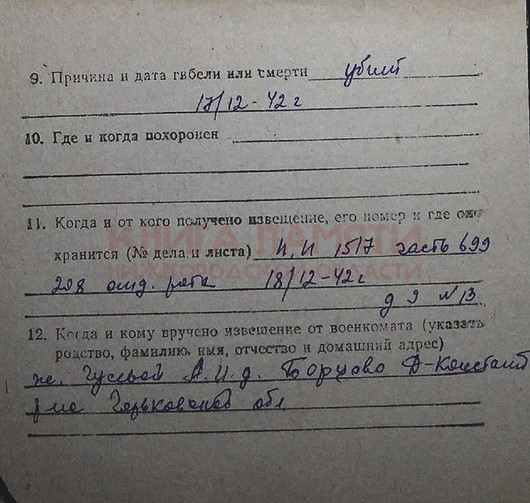 9. Причина и дата гибели или смерти убит
17/12-42 г
10. Где и когда похоронен
11. Когда и от кого получено извещение, его номер и где оно
КНИГА ПАМЯТИ
хранится (№ дела и листа) 1517 часть 699
НИЖЕГОРОДСКОЙ ОБЛАСТИ
208 отд. рота 18/12-42 г
д 9 № 13
12. Когда и кому вручено извещение от военкомата (указать
родство, фамилию, имя, отчество и домашний адрес)
же. Гусевой А.И. д. Борцово Д-Констант
р-на Горьковской обл